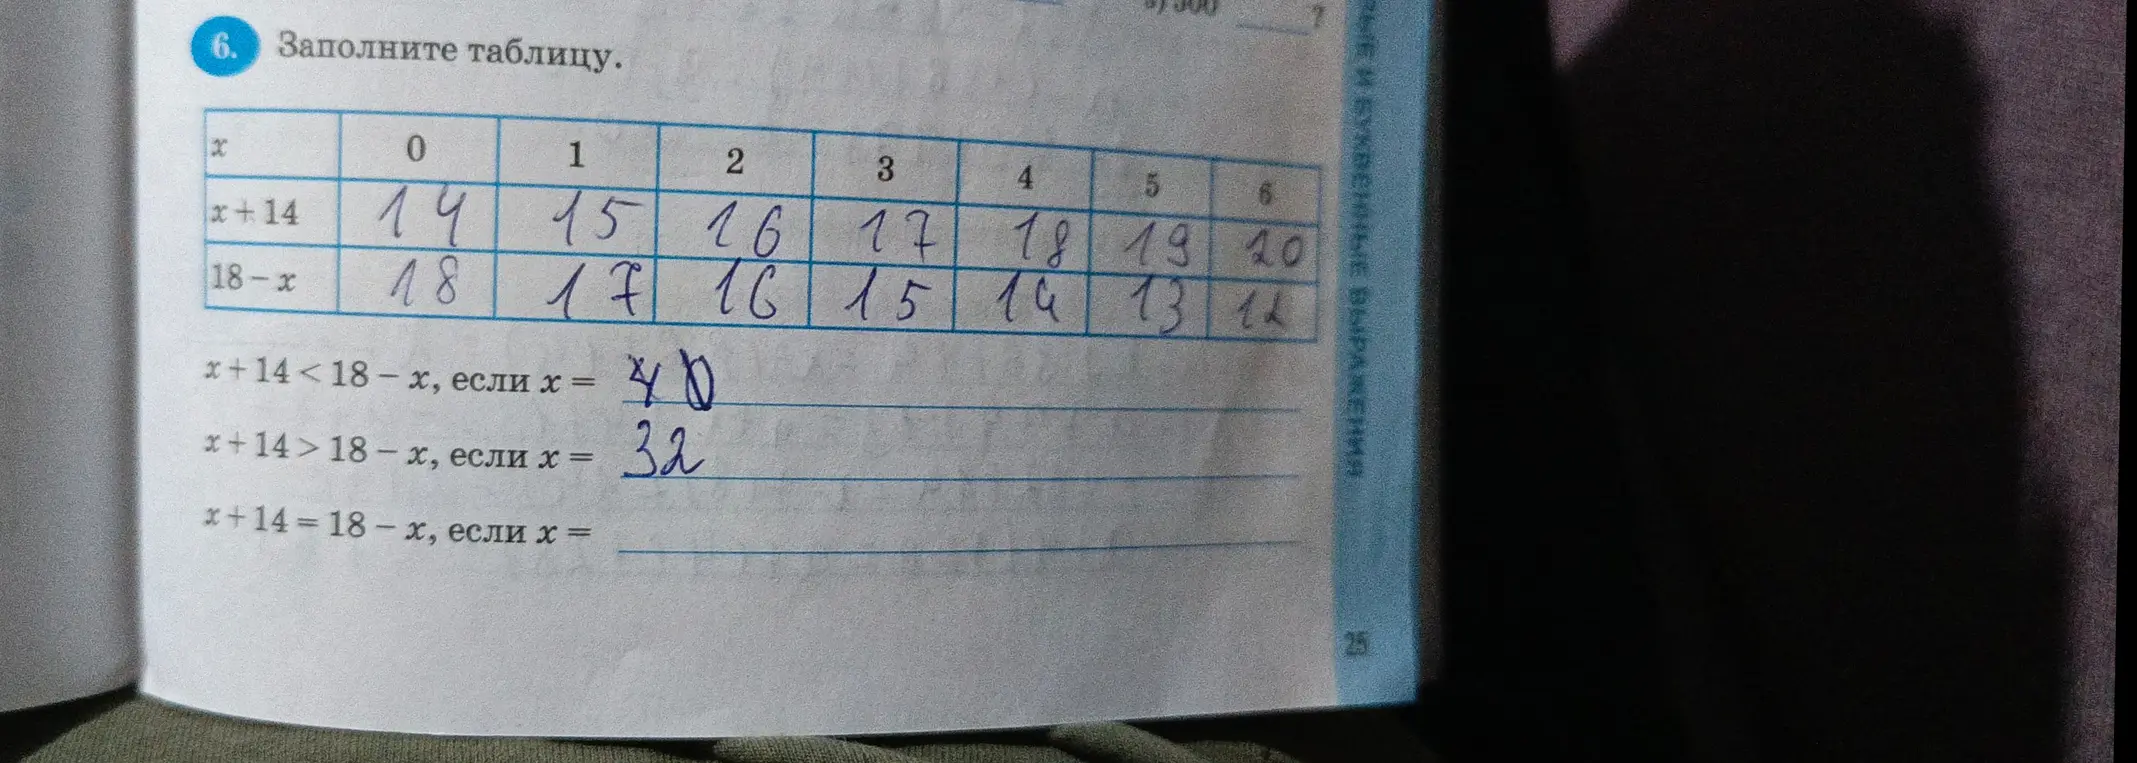 6. Заполните таблицу.
x 0 1 2 3 4 5 6
x + 14 14 15 16 17 18 19 20
18 − x 18 17 16 15 14 13 12
x + 14 < 18 − x, если x =
x + 14 > 18 − x, если x = 32
x + 14 = 18 − x, если x =
И БУКВЕННЫЕ ВЫРАЖЕНИЯ
25